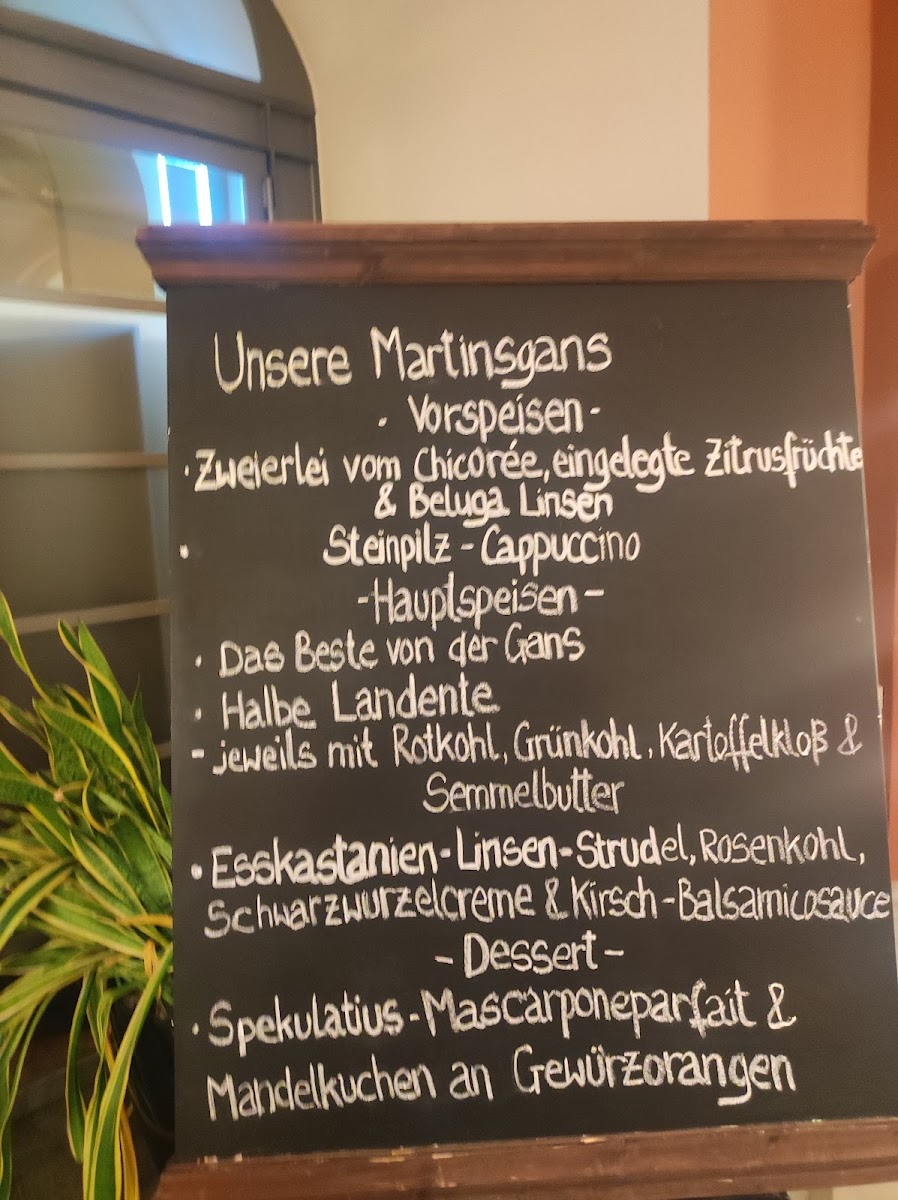 Unsere Martinsgans
- Vorspeisen -
· Zweierlei vom Chicorée, eingelegte Zitrusfrüchte
& Beluga Linsen
· Steinpilz - Cappuccino
- Hauptspeisen -
· Das Beste von der Gans
· Halbe Landente
- jeweils mit Rotkohl, Grünkohl, Kartoffelkloß &
Semmelbutter
· Esskastanien - Linsen - Strudel, Rosenkohl,
Schwarzwurzelcreme & Kirsch - Balsamicosauce
- Dessert -
· Spekulatius - Mascarponeparfait &
Mandelkuchen an Gewürzorangen